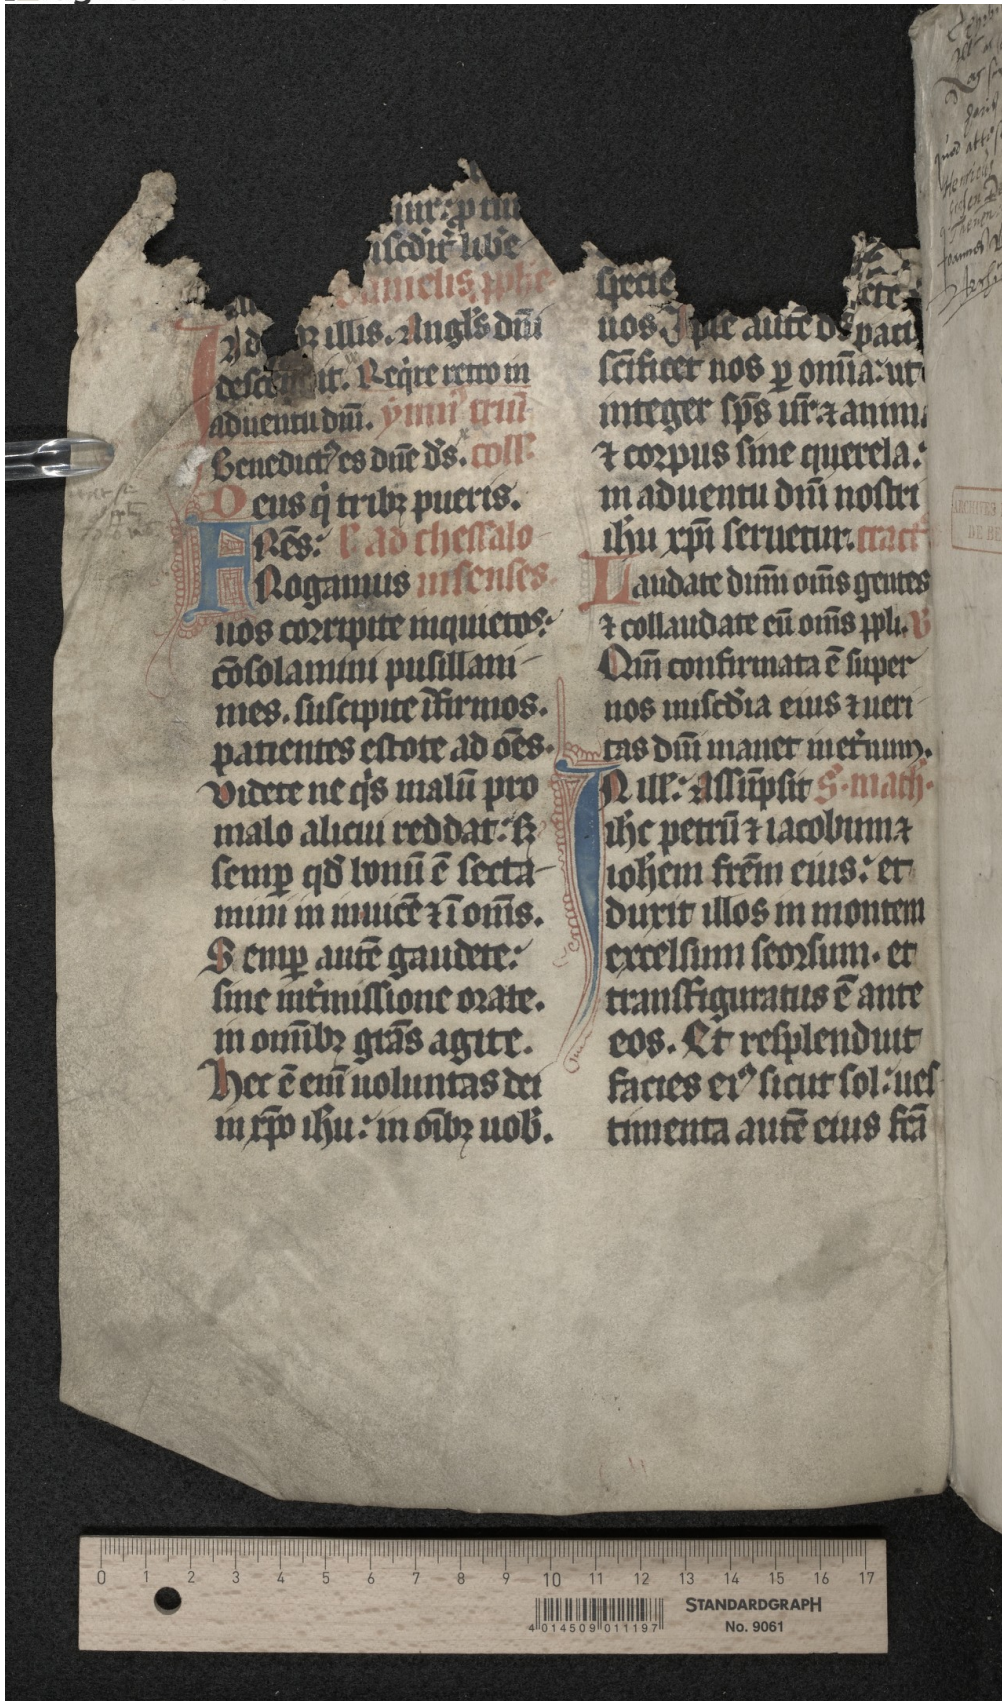 iur: ꝑ tui
iscdīt̄ libe
danielis ꝓphe
illis. Angl's dn̄i
descendit. Reqͥre retro in
aduentu dn̄i. ymn' triū
Benedictꝰ es dn̄e d's. coll'.
Deus qͥ tribꝫ pueris.
Fr̄es: l' ad thessalo
Rogamus nisenses
uos corripite inquietos:
c̄osolamini pusillani
mes. suscipite īfirmos.
patientes estote ad om̄s.
Videte ne qͥs malū pro
malo alicui reddat: sꝫ
semꝑ qd̄ bonū ē secta
mini in inuicē ⁊ ī om̄s.
Semꝑ autē gaudete:
sine int̄missione orate.
in omībꝫ grās agite.
Hec ē eni᷒ uoluntas dei
in xp̄o ihu: in oībꝫ uob̄.
specie
uos. Ipse autē d's paci
sc̄ificet nos ꝑ omīa: ut
integer sp̄s ur̄ ⁊ anima
⁊ corpus sine querela:
in aduentu dn̄i nostri
ihu xp̄i seruetur. tract'
Laudate dn̄m om̄s gentes
⁊ collaudate eū om̄s ppli. V
Qm̄ confirmata ē super
nos misc̄dia eius ⁊ ueri
tas dn̄i manet inet̄num.
IN ill': Assūpsit S. math.
ihc petrū ⁊ iacobum ⁊
iohem fr̄em eius: et
duxit illos in montem
excelsum seorsum. et
transfiguratus ē ante
eos. Et resplenduit
facies eiꝰ sicut sol: ues
timenta autē eius fcā
ARCHIVES
0 1 2 3 4 5 6 7 8 9 10 11 12 13 14 15 16 17
STANDARDGRAPH
No. 9061
4 014509 011197